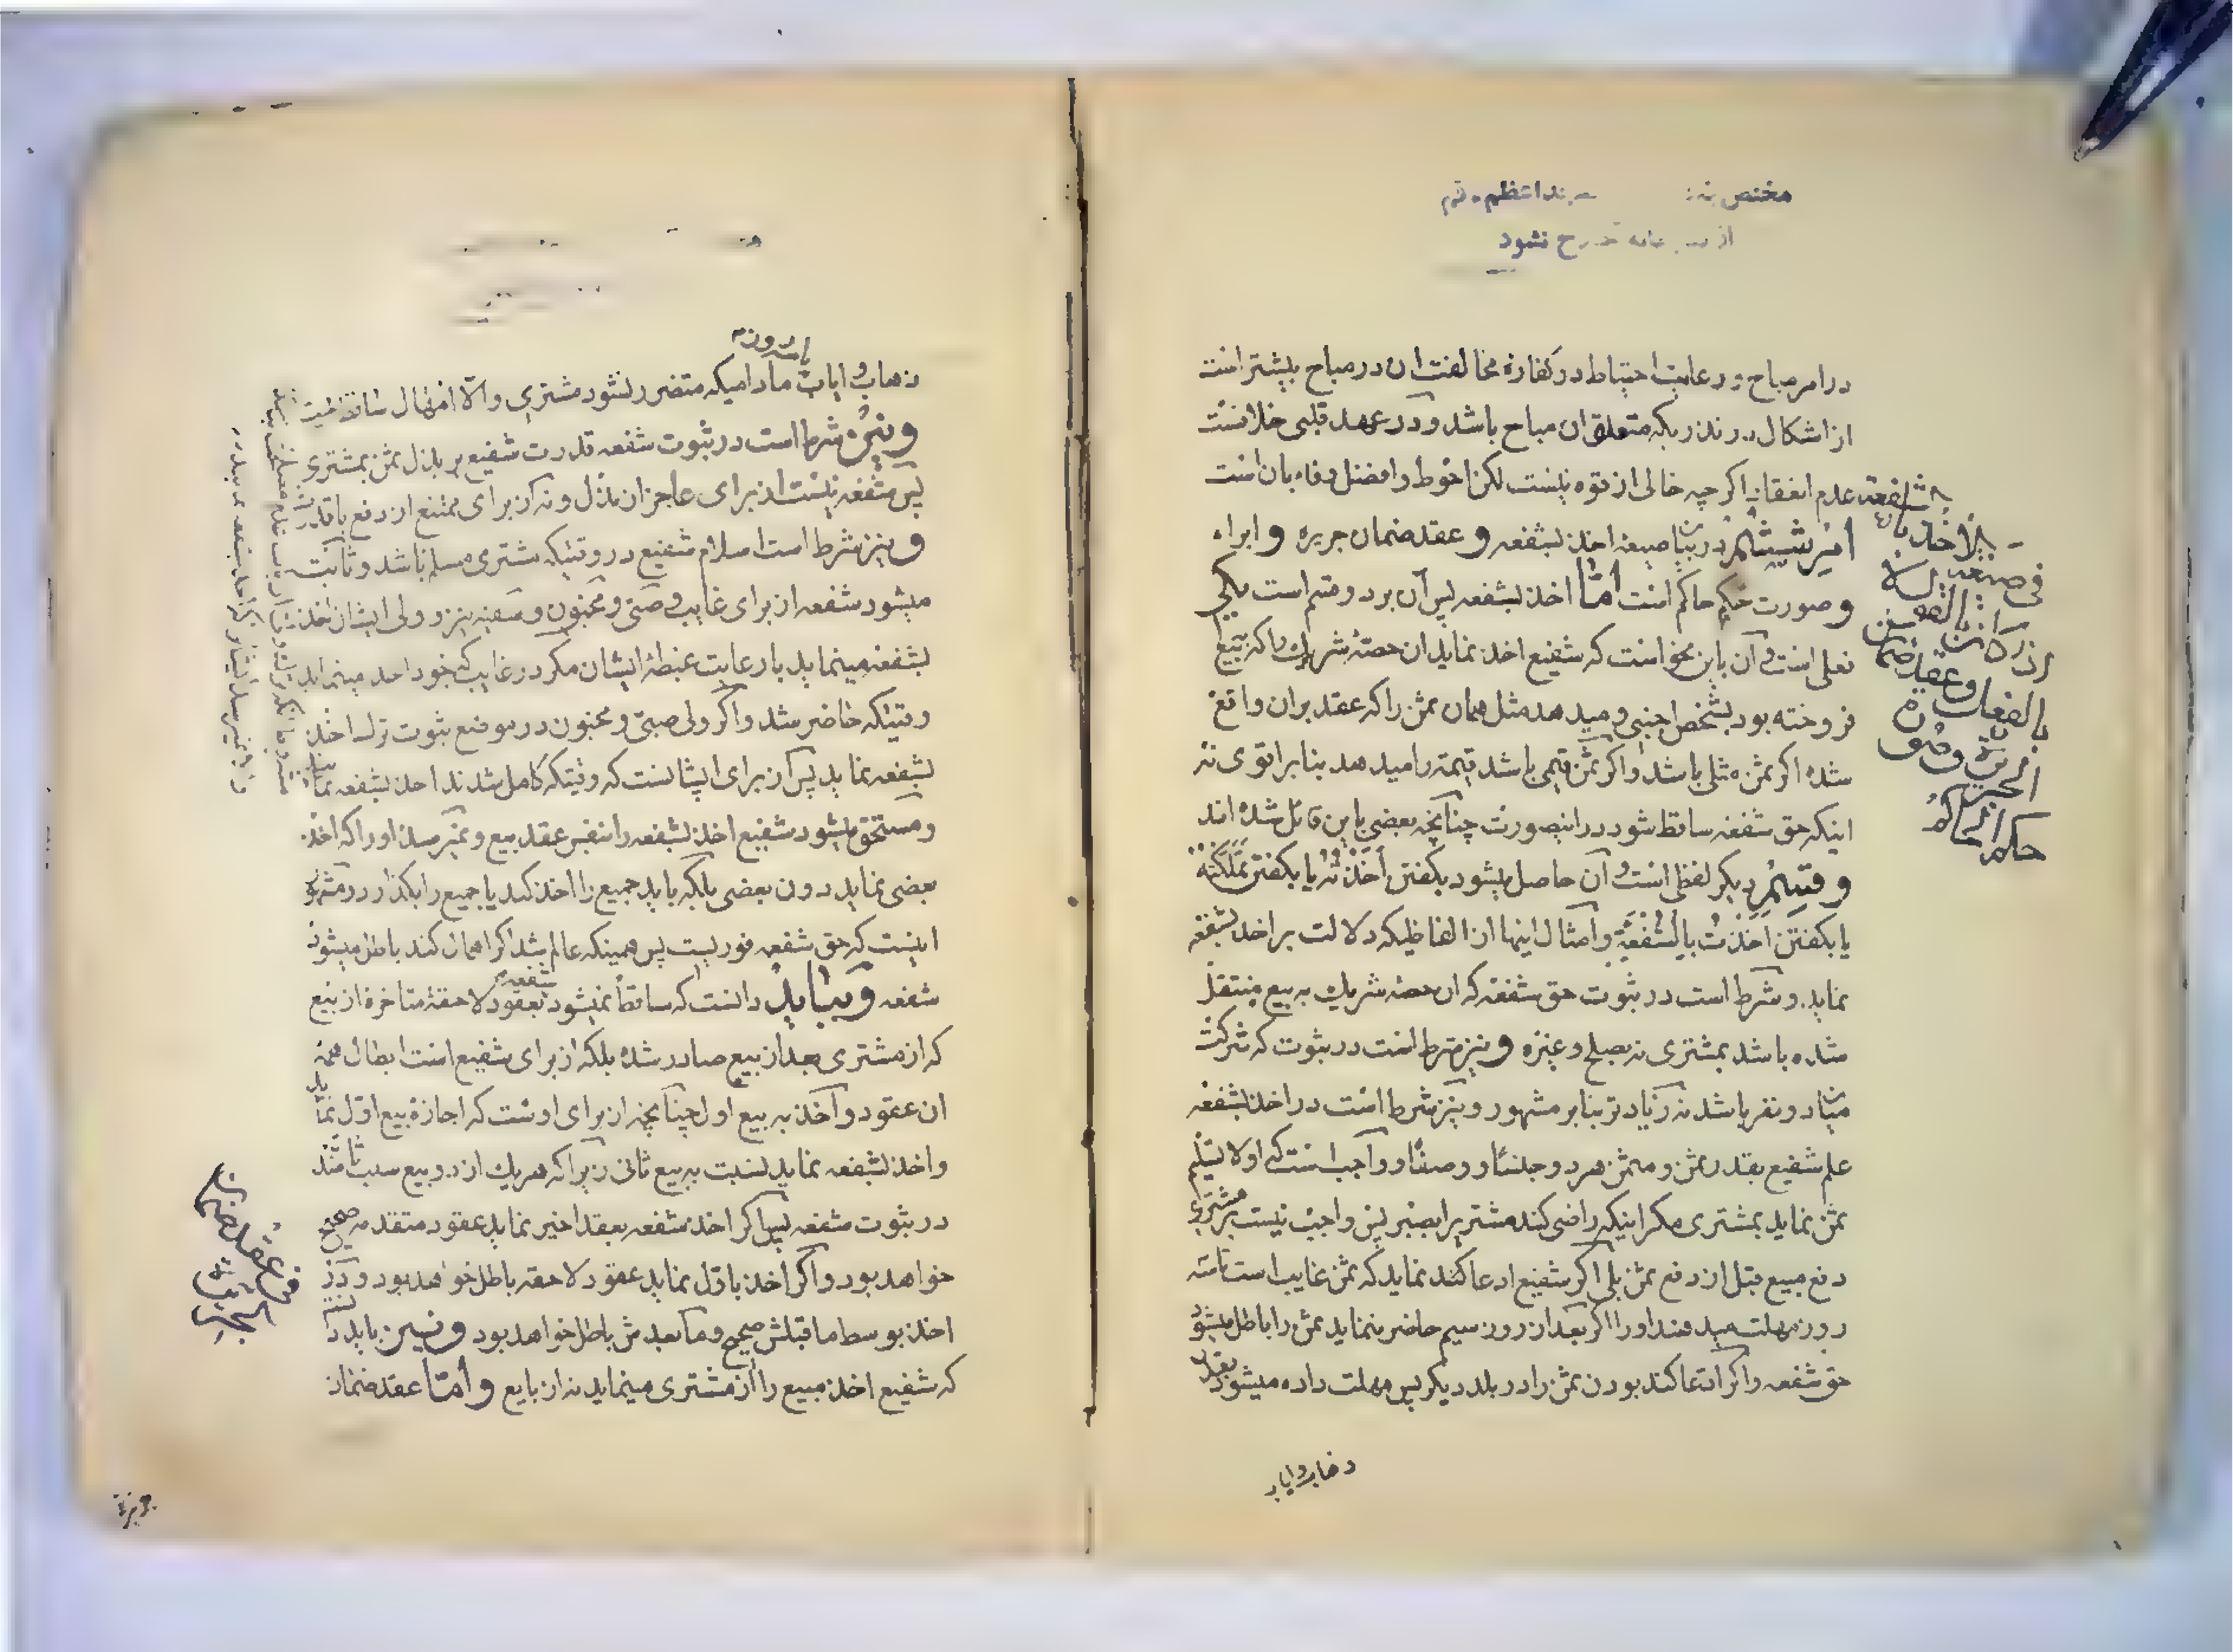 مختص
اعظم . قم
از
نشود
در امر مباح و رعایت احتیاط در کفارهٔ مخالفت ان در مباح بیشتر است
از اشکال در نذریکه متعلق ان مباح باشد و در عهد قلبی خلافست
عدم انعقاد اگرچه خالی از قوه نیست لکن احوط و افضل وفاء بان است
امر ششم در بیان صیغه اخذ بشفعه و عقد ضمان جریره و ابراء
و صورت حکم حاکم است امّا اخذ بشفعه پس آن بر دو قسم است یکی
فعلی است و آن باین نحو است که شفیع اخذ نماید ان حصهٔ شریک را که بیع
فروخته بود بشخص اجنبی و میدهد مثل همان ثمن را که عقد بران واقع
شده اگر ثمن مثلی باشد و اگر ثمن قیمی باشد قیمة را میدهد بنا بر اقوی نه
اینکه حق شفعه ساقط شود در اینصورت چنانچه بعضی باین قائل شده اند
و قسم دیگر لفظی است و آن حاصل میشود بگفتن اَخَذْتُهُ یا بگفتن تَمَلَّکْتُهُ
یا بگفتن اَخَذْتُ بِالشُّفْعَةِ و امثال اینها از الفاظیکه دلالت بر اخذ بشفعه
نماید و شرط است در ثبوت حق شفعه که ان حصه شریک به بیع منتقل
شده باشد بمشتری نه بصلح و غیره و نیز شرط است در ثبوت که شرکت
میان دو نفر باشد نه زیادتر بنا بر مشهور و نیز شرط است در اخذ بشفعه
علم شفیع بقدر ثمن و مثمن هر دو جنسًا و وصفًا و واجب است که اولا تسلیم
ثمن نماید بمشتری مگر اینکه راضی کند مشتریرا بصبر پس واجب نیست بر مشتری
دفع مبیع قبل از دفع ثمن بلی اگر شفیع ادعا کند نماید که ثمن غایب است تا سه
روز مهلت میدهند او را اگر بعد از روز سیم حاضر ننماید ثمن را باطل میشود
حق شفعه و اگر ادّعا کند بودن ثمن را در بلد دیگر پس مهلت داده میشود بقدر
ذهاب و ایاب
شفعه
بالاخذ با
فی صیغه
بالضمان و عقد ضمان
الجریرة و
حکم الحاکم
یا سه روزه
ذهاب و ایاب مادامیکه متضرر نشود مشتری والّا امهال ساقط است
و نیز شرط است در ثبوت شفعه قدرت شفیع بر بذل ثمن بمشتری
پس شفعه نیست از برای عاجز ان بذل و نه از برای ممتنع از دفع با قدرت
و نیز شرط است اسلام شفیع در وقتیکه مشتری مسلم باشد و ثابت
میشود شفعه از برای غایب و صبیّ و مجنون و سفیه نیز و ولی ایشان اخذ
بشفعه مینماید با رعایت غبطهٔ ایشان مگر در غایب که خود اخذ مینماید
وقتیکه حاضر شد و اگر ولی صبیّ و مجنون در موضع ثبوت ترک اخذ
بشفعه نماید پس از برای ایشانست که وقتیکه کامل شدند اخذ بشفعه نمایند
و مستحق میشود شفیع اخذ بشفعه را بنفس عقد بیع و نمیرسد او را که اخذ
بعضی نماید دون بعضی بلکه باید جمیع را اخذ کند یا جمیع را بگذارد و مشهور
اینست که حق شفعه فوریست پس همینکه عالم شد اگر اهمال کند باطل میشود
شفعه و بباید دانست که ساقط نمیشود شفعه بعقود لاحقهٔ متاخره از بیع
که از مشتری بعد از بیع صادر شده بلکه از برای شفیع است ابطال همه
ان عقود و اخذ به بیع اول چنانچه از برای اوست که اجازهٔ بیع اوّل نماید
و اخذ بشفعه نماید نسبت به بیع ثانی زیرا که هر یک از دو بیع سبب تامّند
در ثبوت شفعه پس اگر اخذ شفعه بعقد اخیر نماید عقود متقدمه صحیح
خواهد بود و اگر اخذ باوّل نماید عقود لاحقه باطل خواهد بود و در
اخذ بوسط ماقبلش صحیح و مابعدش باطل خواهد بود و نیز باید دانست
که شفیع اخذ مبیع را از مشتری مینماید نه از بایع و امّا عقد ضمان
فی عقد ضمان
الجریرة
جریره